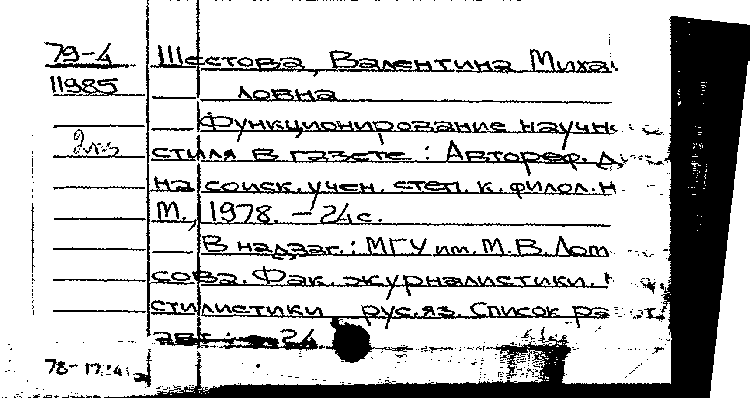 79-4 Шестова, Валентина Миха
11985 ловна
Функционирование научн
2 экз стиля в газете : Автореф. д
на соиск. учен. степ. к. филол. н
М., 1978. - 24 с.
В надзаг.: МГУ им. М. В. Лом
сова. Фак. журналистики.
стилистики рус. яз. Список ра
авт.: с. 24
78-